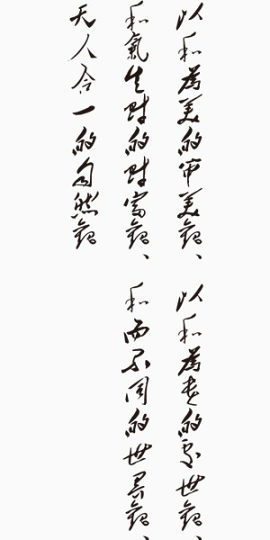 以和為美的审美觀、以和為贵的處世觀、
和氣生财的财富觀、和而不同的世界觀、
天人合一的自然觀